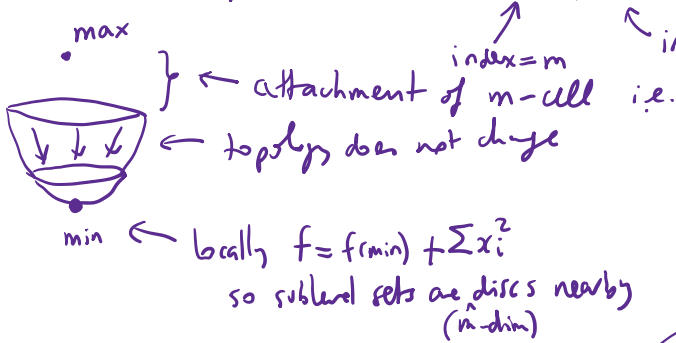 max
index=m
← attachment of m-cell i.e.
← topology does not change
min ← locally f = f(min) + Σ x_i^2
so sublevel sets are discs nearby
(m-dim)